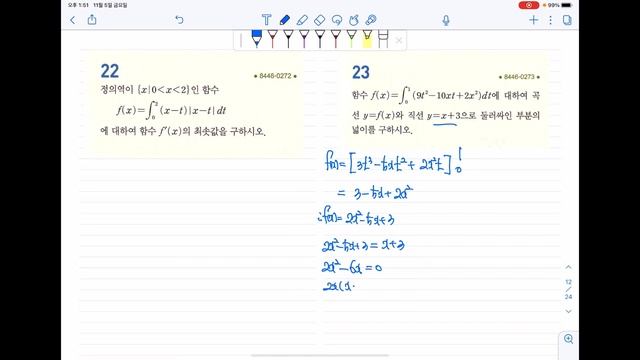 오후 1:51 11월 5일 금요일
99%
22
8446-0272
정의역이 {x|0<x<2}인 함수
f(x)=∫₀²(x-t)|x-t|dt
에 대하여 함수 f′(x)의 최솟값을 구하시오.
23
8446-0273
함수 f(x)=∫₀¹(9t²-10xt+2x²)dt에 대하여 곡
선 y=f(x)와 직선 y=x+3으로 둘러싸인 부분의
넓이를 구하시오.
f(x)=[3t³-5xt²+2x²t]₀¹
= 3-5x+2x²
∴f(x)=2x²-5x+3
2x²-5x+3=x+3
2x²-6x=0
2x(x-
12
24